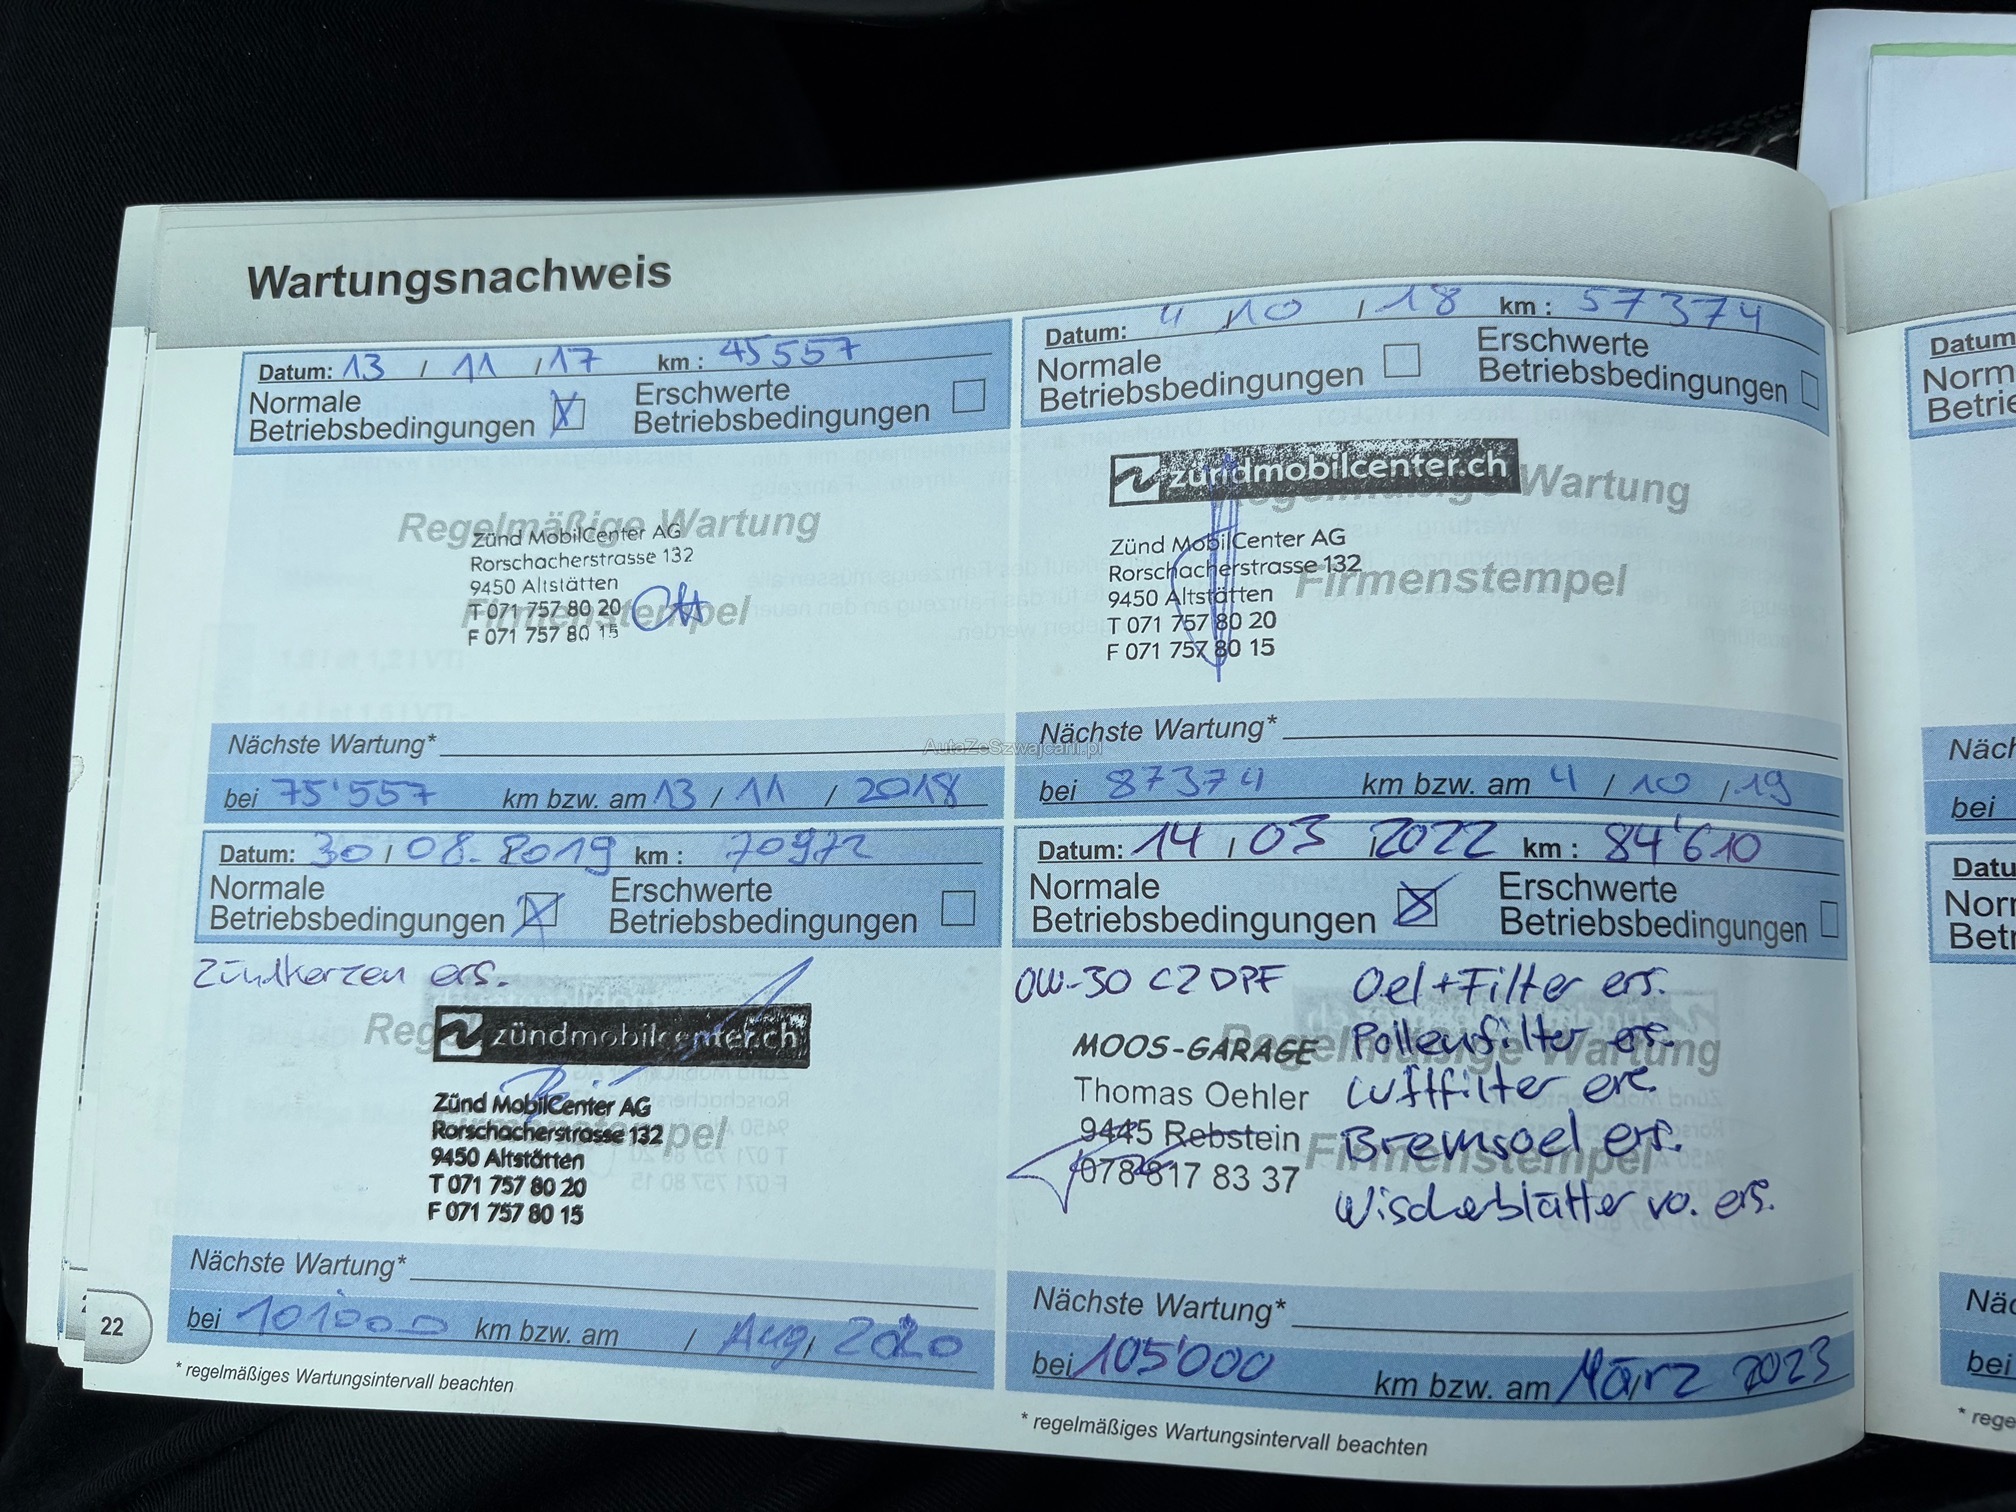 Wartungsnachweis
Datum: 13 / 11 / 17 km : 45557
Normale Betriebsbedingungen X Erschwerte Betriebsbedingungen
Regelmäßige Wartung
Firmenstempel
Zünd MobilCenter AG
Rorschacherstrasse 132
9450 Altstätten
T 071 757 80 20
F 071 757 80 15
Nächste Wartung*
bei 75'557 km bzw. am 13 / 11 / 2018
Datum: 4 / 10 / 18 km : 57374
Normale Betriebsbedingungen Erschwerte Betriebsbedingungen
zündmobilcenter.ch
Regelmäßige Wartung
Firmenstempel
Zünd MobilCenter AG
Rorschacherstrasse 132
9450 Altstätten
T 071 757 80 20
F 071 757 80 15
Nächste Wartung*
bei 87374 km bzw. am 4 / 10 / 19
Datum: 30 / 08. 2019 km : 70972
Normale Betriebsbedingungen X Erschwerte Betriebsbedingungen
Zündkerzen ers.
zündmobilcenter.ch
Zünd MobilCenter AG
Rorschacherstrasse 132
9450 Altstätten
T 071 757 80 20
F 071 757 80 15
Nächste Wartung*
bei 101'000 km bzw. am / Aug, 2020
* regelmäßiges Wartungsintervall beachten
Datum: 14 / 03 / 2022 km : 84'610
Normale Betriebsbedingungen X Erschwerte Betriebsbedingungen
0W-30 C2 DPF
Oel + Filter ers.
Pollenfilter ers.
Luftfilter ers.
Bremsoel ers.
Wischeblätter vo. ers.
Regelmäßige Wartung
Firmenstempel
MOOS-GARAGE
Thomas Oehler
9445 Rebstein
078 817 83 37
Nächste Wartung*
bei 105'000 km bzw. am März 2023
* regelmäßiges Wartungsintervall beachten
22
AutaZeSzwajcarii.pl
Datum
Betrie
bei
Datu
Betr
bei
* rege